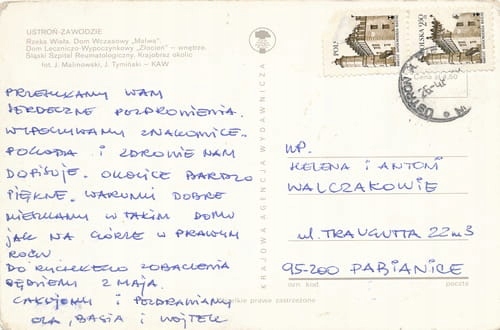 USTROŃ-ZAWODZIE
Rzeka Wisła. Dom Wczasowy „Malwa".
Dom Leczniczo-Wypoczynkowy „Złocień" – wnętrze.
Śląski Szpital Reumatologiczny. Krajobraz okolic
fot. J. Malinowski, J. Tymiński – KAW
PRZESYŁAMY WAM
SERDECZNE POZDROWIENIA.
WYPOCZYWAMY ZNAKOMICIE.
POGODA I ZDROWIE NAM
DOPISUJE. OKOLICE BARDZO
PIĘKNE. WARUNKI DOBRE
MIESZKAMY W TAKIM DOMU
JAK NA GÓRZE W PRAWYM
ROGU
DO RYCHŁEGO ZOBACZENIA
BĘDZIEMY 2 MAJA.
CAŁUJEMY I POZDRAWIAMY
OLA, BASIA I WOJTEK
KRAJOWA AGENCJA WYDAWNICZA
wszelkie prawa zastrzeżone
POLSKA 1,50
USTROŃ
WP.
HELENA I ANTONI
WALCZAKOWIE
ul. TRAUGUTTA 22 m 3
95-200 PABIANICE
ozn. kod poczta